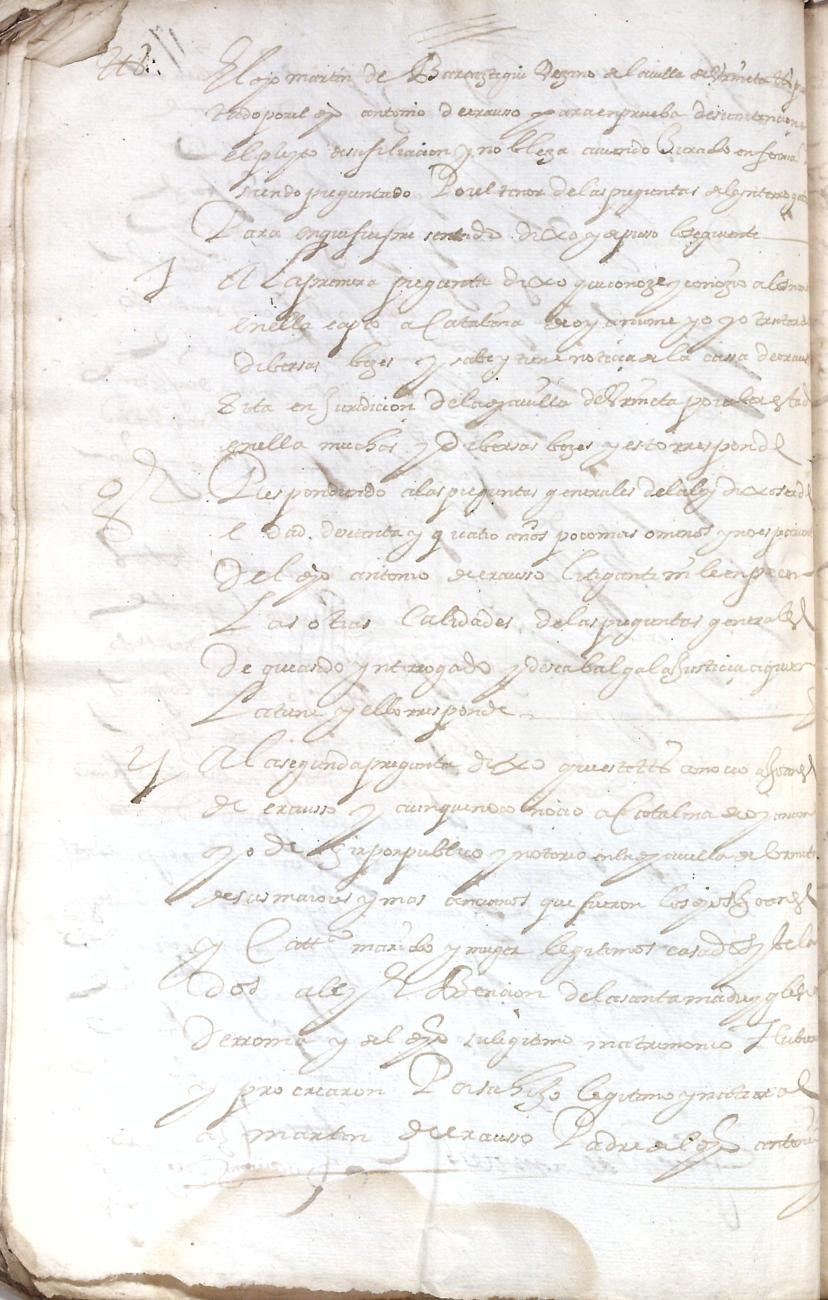 tt̃o
El dho martin de Baraiztegui Vezino de la villa de Urnieta tto presen
tado por el dho antonio de erausso para en prueba de su intencion en
el pleyto de su filiacion y nobleza aviendo Jurado en forma
siendo preguntado Por el tenor de las preguntas del ynterrogato
Para en que fue presentado dixo y depuso lo seguiente
1 A la primera pregunta dixo que conoze y conozio a los
en ella eapto a Catalina de oyanume yo y o tratado
diberssas bezes y sabe y tiene noticia de la cassa de eraus
Sita en Juridicion de la dha villa de Urnieta por aber estad
en ella muchas y diberssas bezes y esto rresponde
gl Respondiendo a las preguntas generales de la ley dixo ser de
hedad de y quatro años poco mas o menos y no es pariente
Del dho antonio de erausso litigante ni le enpecen
Las otras Calidades de las preguntas generales
De que a sido ynterrogado y desea balga la Justicia a quien
La tiene y ello rresponde
2 A la segunda pregunta dixo que este tto conocio a Joanes
de erausso y aunque no conocio a Catalina de oyanum
yo de oir por publico y notorio en la dha villa de Urnieta
de sus maiores y mas ancianos que fueron los dhos Joanes
y Catta marido y muger legitimos casados y bela
dos a ley y Bendicion de la santa madre ygles
De rroma y del dho su legitimo matrimonio Hubieron
y procrearon Por su hijo legitimo y natural
a martin de erausso Padre del dho antonio